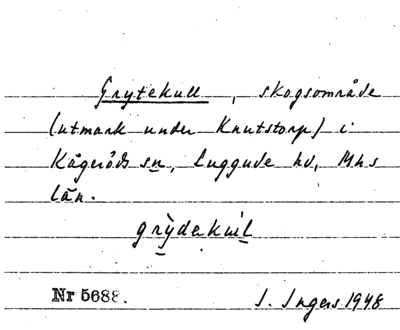 Grytekull, skogsområde
(utmark under Knutstorp) i
Kågeröds sn, Luggude hd, Mhs
län.
grỳdekul
Nr 5688.
I. Ingers 1948